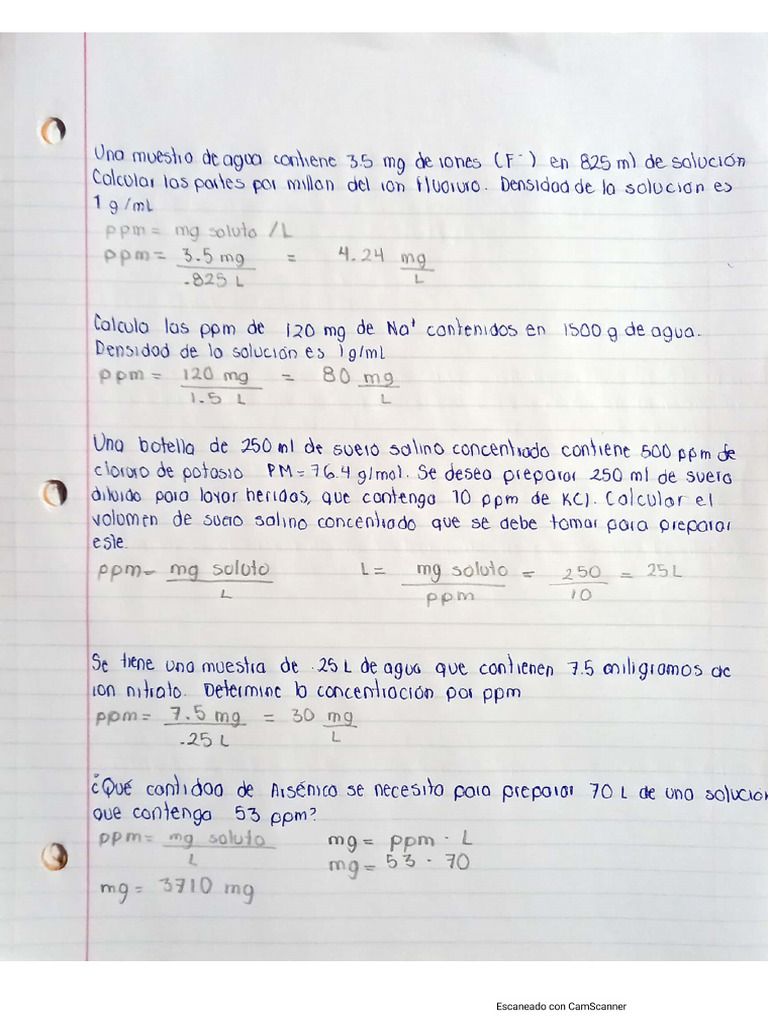 Una muestra de agua contiene 3.5 mg de iones (F⁻) en 825 ml de solución
Calcular las partes por millon del ion fluoruro. Densidad de la solucion es
1 g/mL
ppm = mg soluto /L
ppm = 3.5 mg / .825 L = 4.24 mg/L
Calcula las ppm de 120 mg de Na⁺ contenidos en 1500 g de agua.
Densidad de la solución es 1g/mL
ppm = 120 mg / 1.5 L = 80 mg/L
Una botella de 250 ml de suero salino concentrado contiene 500 ppm de
cloruro de potasio PM=76.4 g/mol. Se desea preparar 250 ml de suero
diluido para lavar heridas, que contenga 10 ppm de KCl. Calcular el
volumen de suero salino concentrado que se debe tomar para preparar
este.
ppm = mg soluto / L L = mg soluto / ppm = 250 / 10 = 25L
Se tiene una muestra de .25 L de agua que contienen 7.5 miligramos de
ion nitrato. Determine la concentración por ppm
ppm = 7.5 mg / .25 L = 30 mg/L
¿Qué cantidad de Arsénico se necesita para preparar 70 L de una solución
que contenga 53 ppm?
ppm = mg soluto / L mg = ppm · L
mg = 53 · 70
mg = 3710 mg
Escaneado con CamScanner